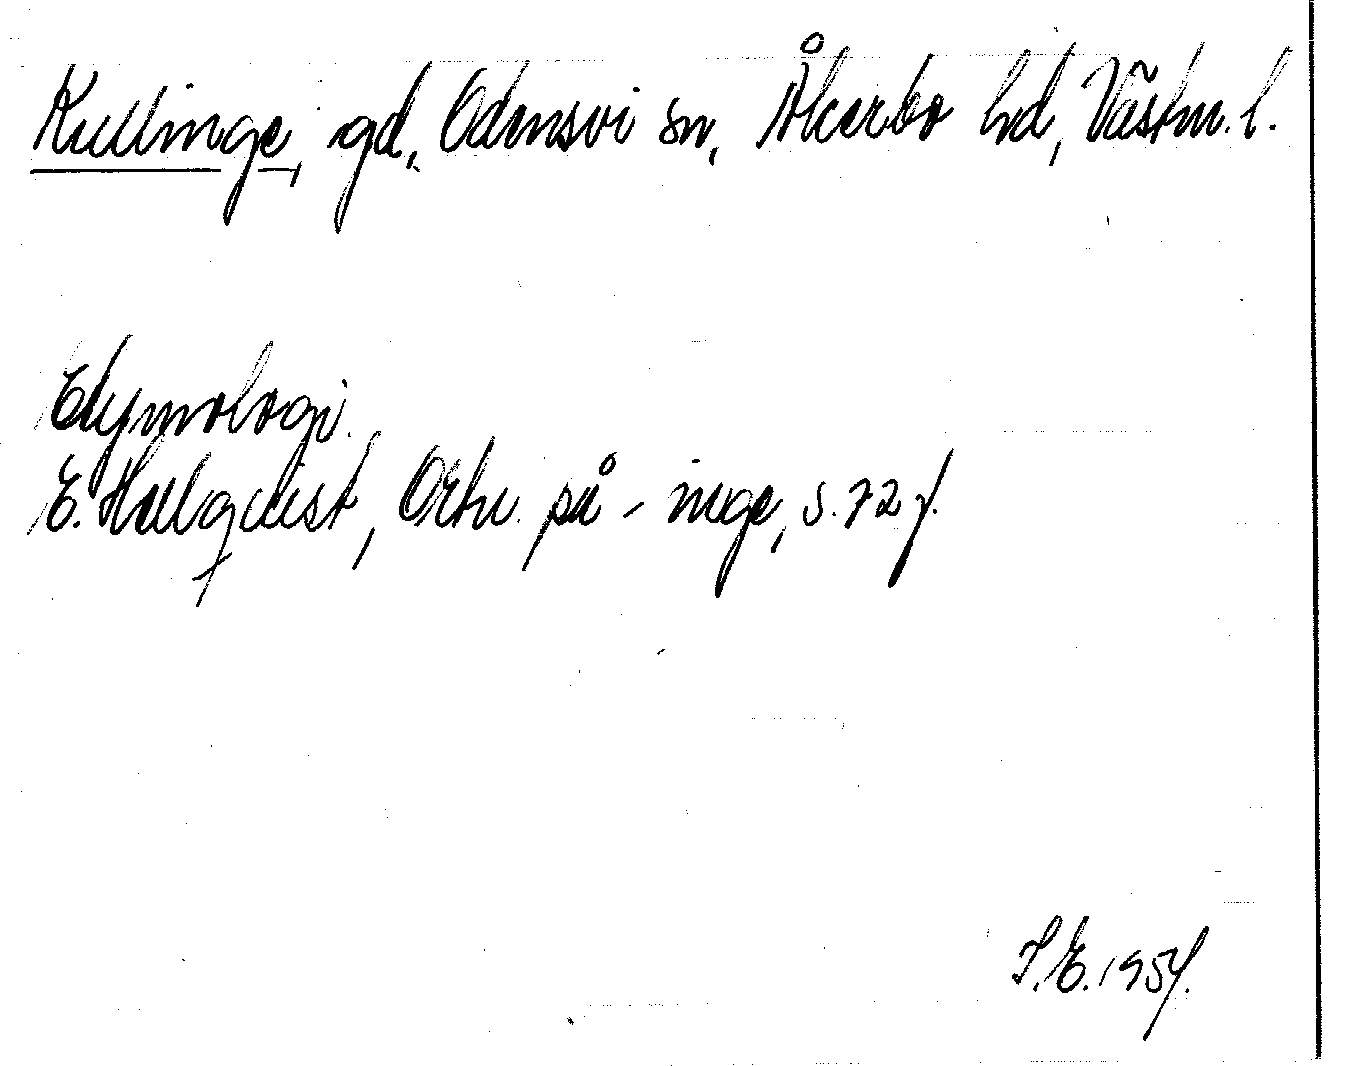 Kullinge, gd, Odensvi sn, Åkerbo hd, Västm. l.
Etymologi.
E. Hellquist, Ortn. på -inge, s. 72 f.
I. E. 1954.